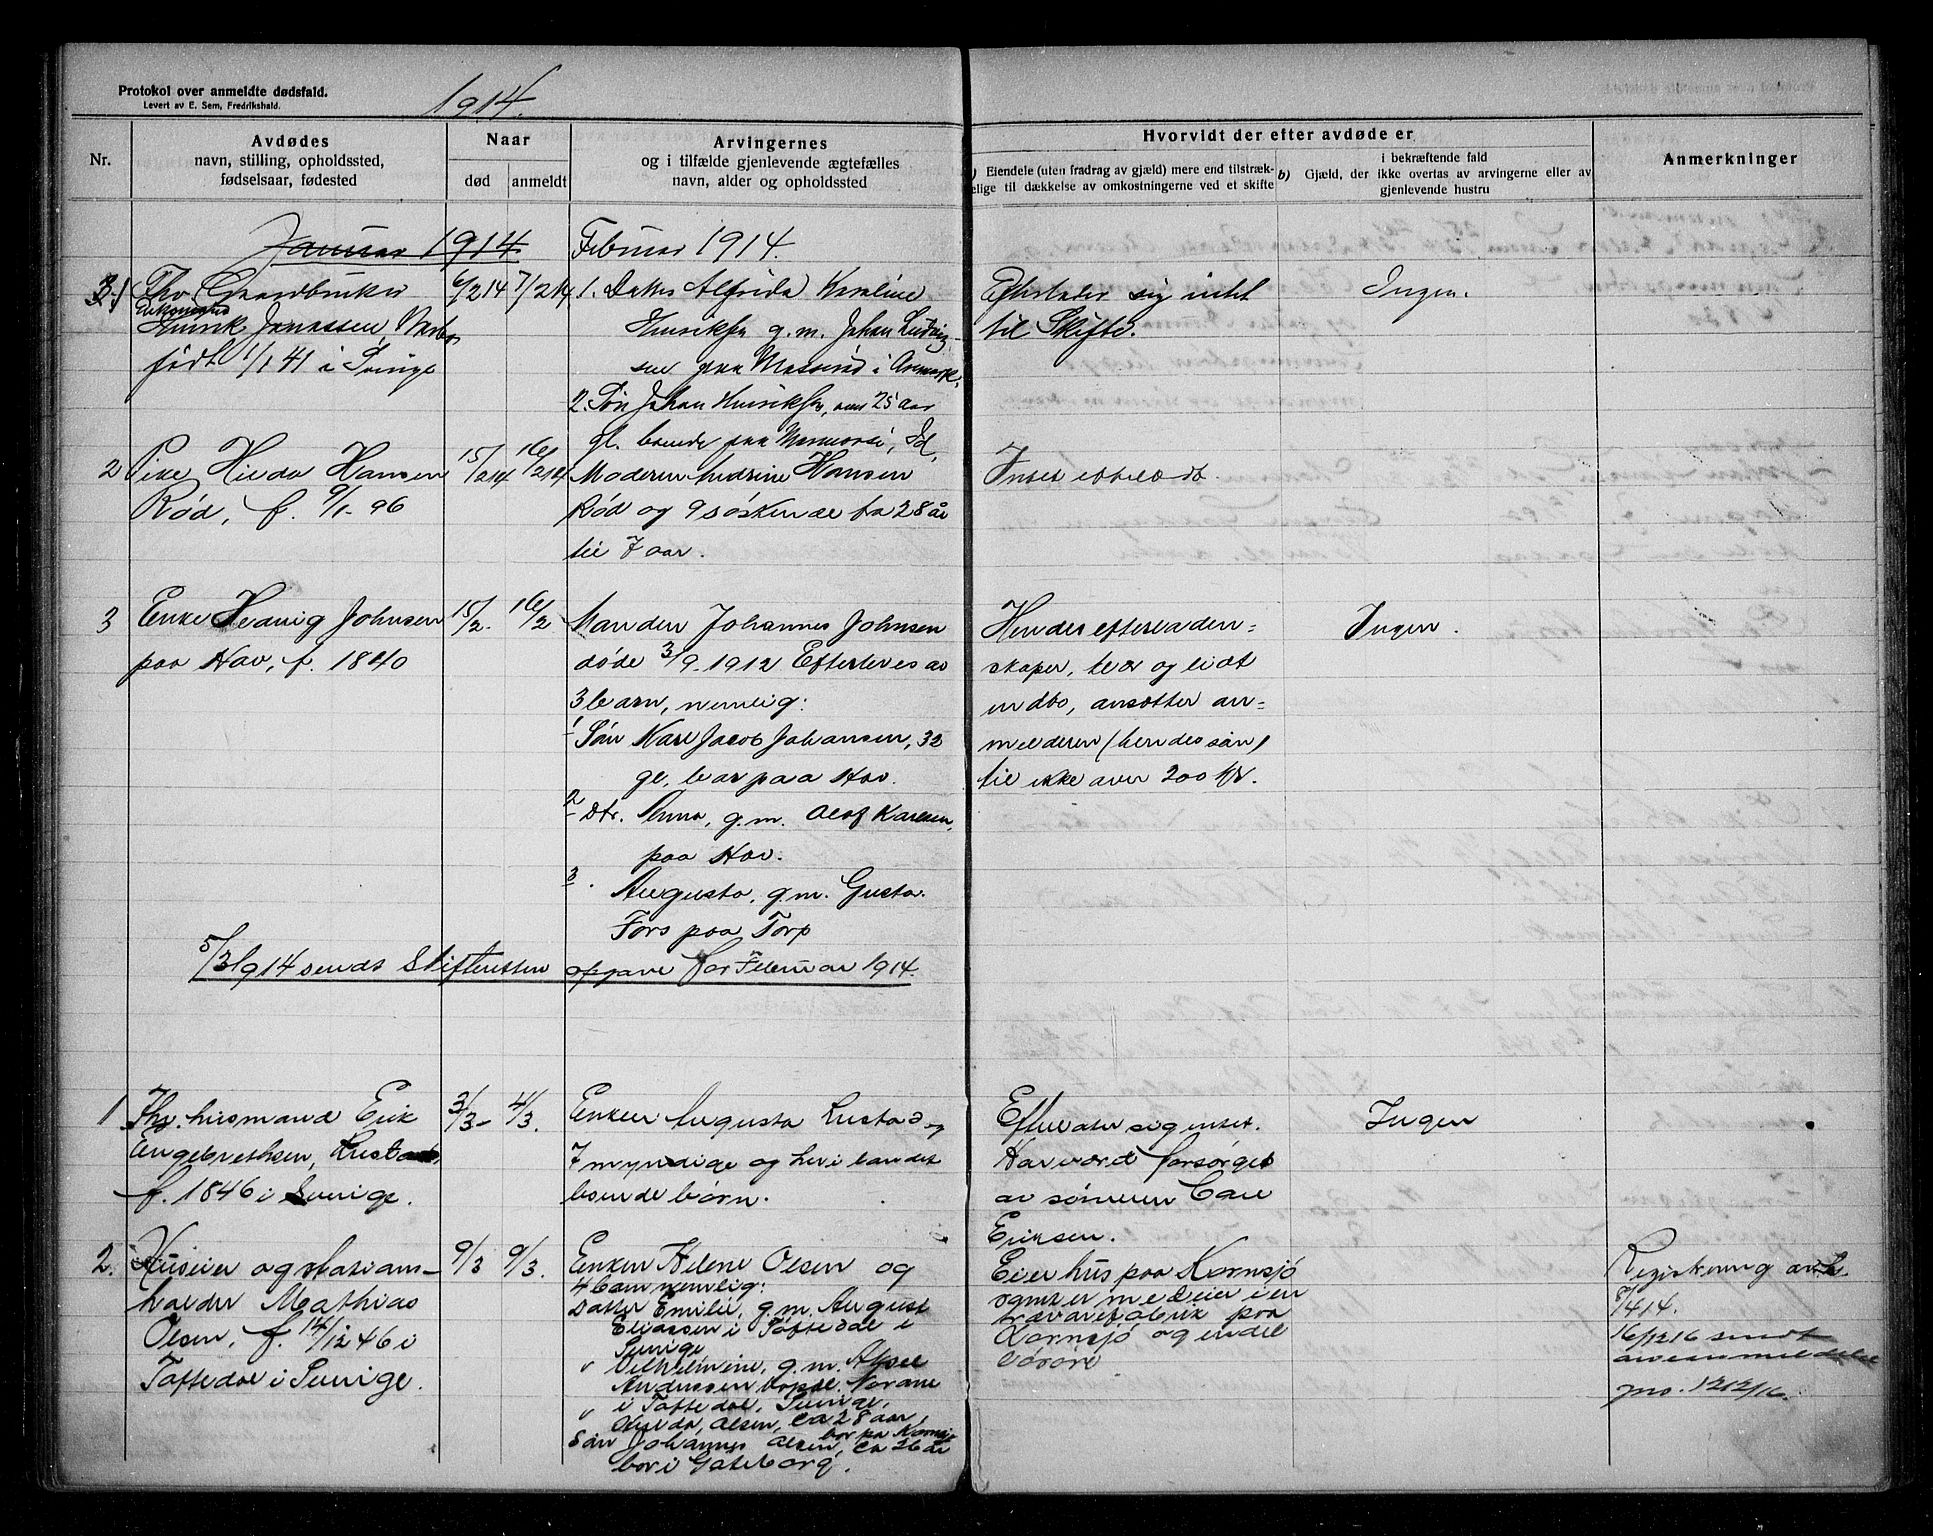 Protokol over anmeldte dødsfald.
Levert av E. Sem, Fredrikshald.
1914.
Nr.
Avdødes
navn, stilling, opholdssted,
fødselsaar, fødested
Naar
død
anmeldt
Arvingernes
og i tilfælde gjenlevende ægtefælles
navn, alder og opholdssted
Hvorvidt der efter avdøde er
Eiendele (uten fradrag av gjæld) mere end tilstræk-
elige til dækkelse av omkostningerne ved et skifte
i bekræftende fald
b) Gjæld, der ikke overtas av arvingerne eller av
gjenlevende hustru
Anmerkninger
Januar 1914
Februar 1914.
Fhv. Gaardbruker
Enkemand
Henrik Janassen,
født 1/1 41 i Sverige
6/2 14
7/2 14
1. Datter Alfrida Karoline
Henriksen g.m. Johan Ludvig-
sen paa i Aremark.
2. Søn Johan Henriksen, over 25 aar
gl. boende paa Id.
Efterlader sig intet
til Skifte.
Ingen.
2
Pike Hilda Hansen
Rød, f. 9/1 96
15/2 14
16/2 14
Moderen Hansen
Rød og 9 søskende fra 28 år
til 7 aar.
Intet efterladt.
3
Enke Hedvig Johnsen
paa Hov, f. 1840
15/2.
16/2
Manden Johannes Johnsen
døde 3/9 1912 Efterleves av
3 barn, nemlig:
1 Søn Karl Jacob Johansen, 32
gl., bor paa Hov.
2 Dtr. Anna, g.m. Olaf Karlsen,
paa Hov.
3. Augusta, g.m. Gusta.
Fors paa Torp
Hendes efterladen=
skaper, klær og lidt
indbo, ansætter an=
melderen (hendes søn)
til ikke over 200 kr.
Ingen.
5/3 1914 sendt Skifteretten opgave for Februar 1914.
1
Fhv. husmand Erik
Engebrethsen, Lustad,
f. 1846 i Sverige.
3/3-
4/3.
Enken Augusta Lustad og
7 myndige og her i landet
boende børn.
Efterlater sig intet.
Har vært forsørget
av sønnen Carl
Eriksen.
Ingen
2.
Huseier og stations-
holder Mathias
Olsen, f. 14/12 46 i
Töftedal i Sverige.
9/3
9/3.
Enken Helene Olsen og
4 barn nemlig:
Datter Emilie, g.m. August
Eliassen i Töftedal i
Sverige
" Vilhelmine, g.m. Aksel
Anderssen Norane
i Töftedal, Sverige,
" Hulda Olsen, ca 28 aar,
bor på Kornsjø
Søn Johannes Olsen, ca 26 år
bor i Gøteborg.
Eier hus paa Kornsjø
samt er medeier i en
trævarefabrik paa
Kornsjø og endel
løsøre
Registrering avh.
7/4 14.
16/12 16 sendt
arveanmeldelse